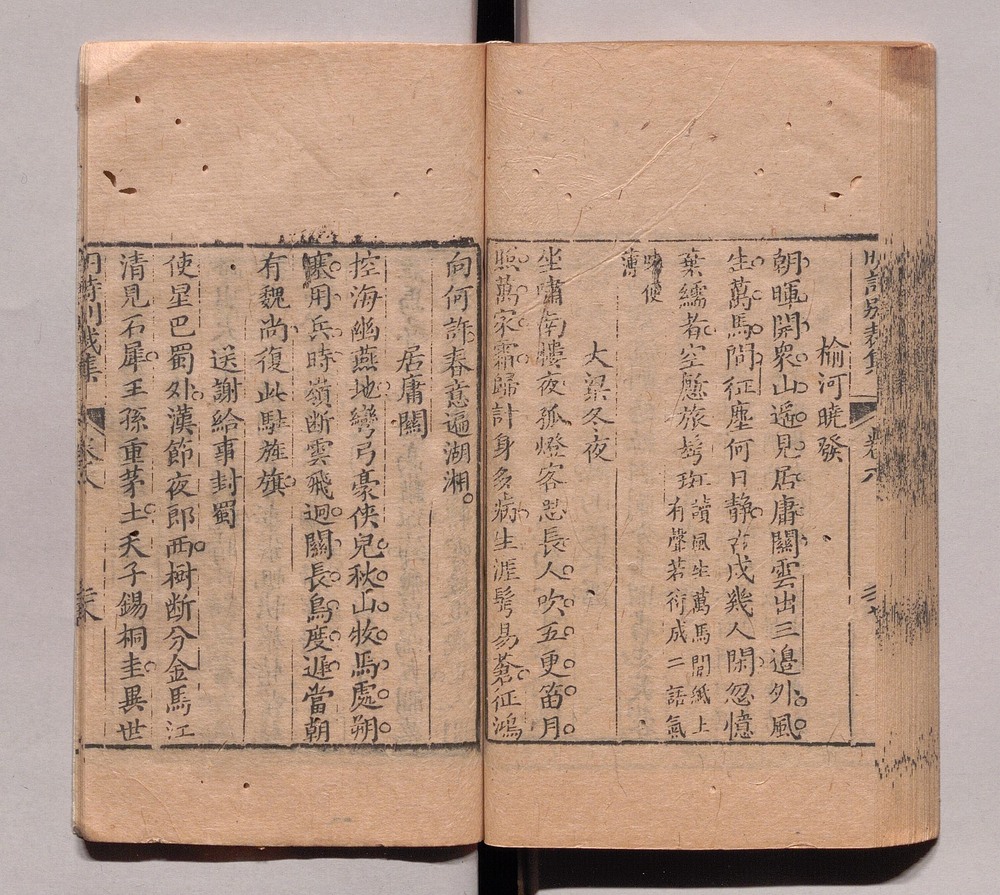 榆河曉發
朝暉開衆山遥見居庸關雲出三邊外風
生萬馬間征塵何日靜古戍幾人閑忽憶
棄繻者空慙旅鬢斑
讀風生萬馬間紙上
有聲若衍成二語氣
味便
薄
大梁冬夜
坐嘯南樓夜孤燈客思長人吹五更笛月
照萬家霜歸計身多病生涯鬢易蒼征鴻
向何許春意遍湖湘
居庸關
控海幽燕地彎弓豪俠兒秋山牧馬處朔
塞用兵時嶺断雲飛迥關長鳥度遲當朝
有魏尚復此駐旌旗
送謝給事封蜀
使星巴蜀外漢節夜郎西樹断分金馬江
清見石犀王孫重茅土天子錫桐圭異世
明詩別裁集 卷八